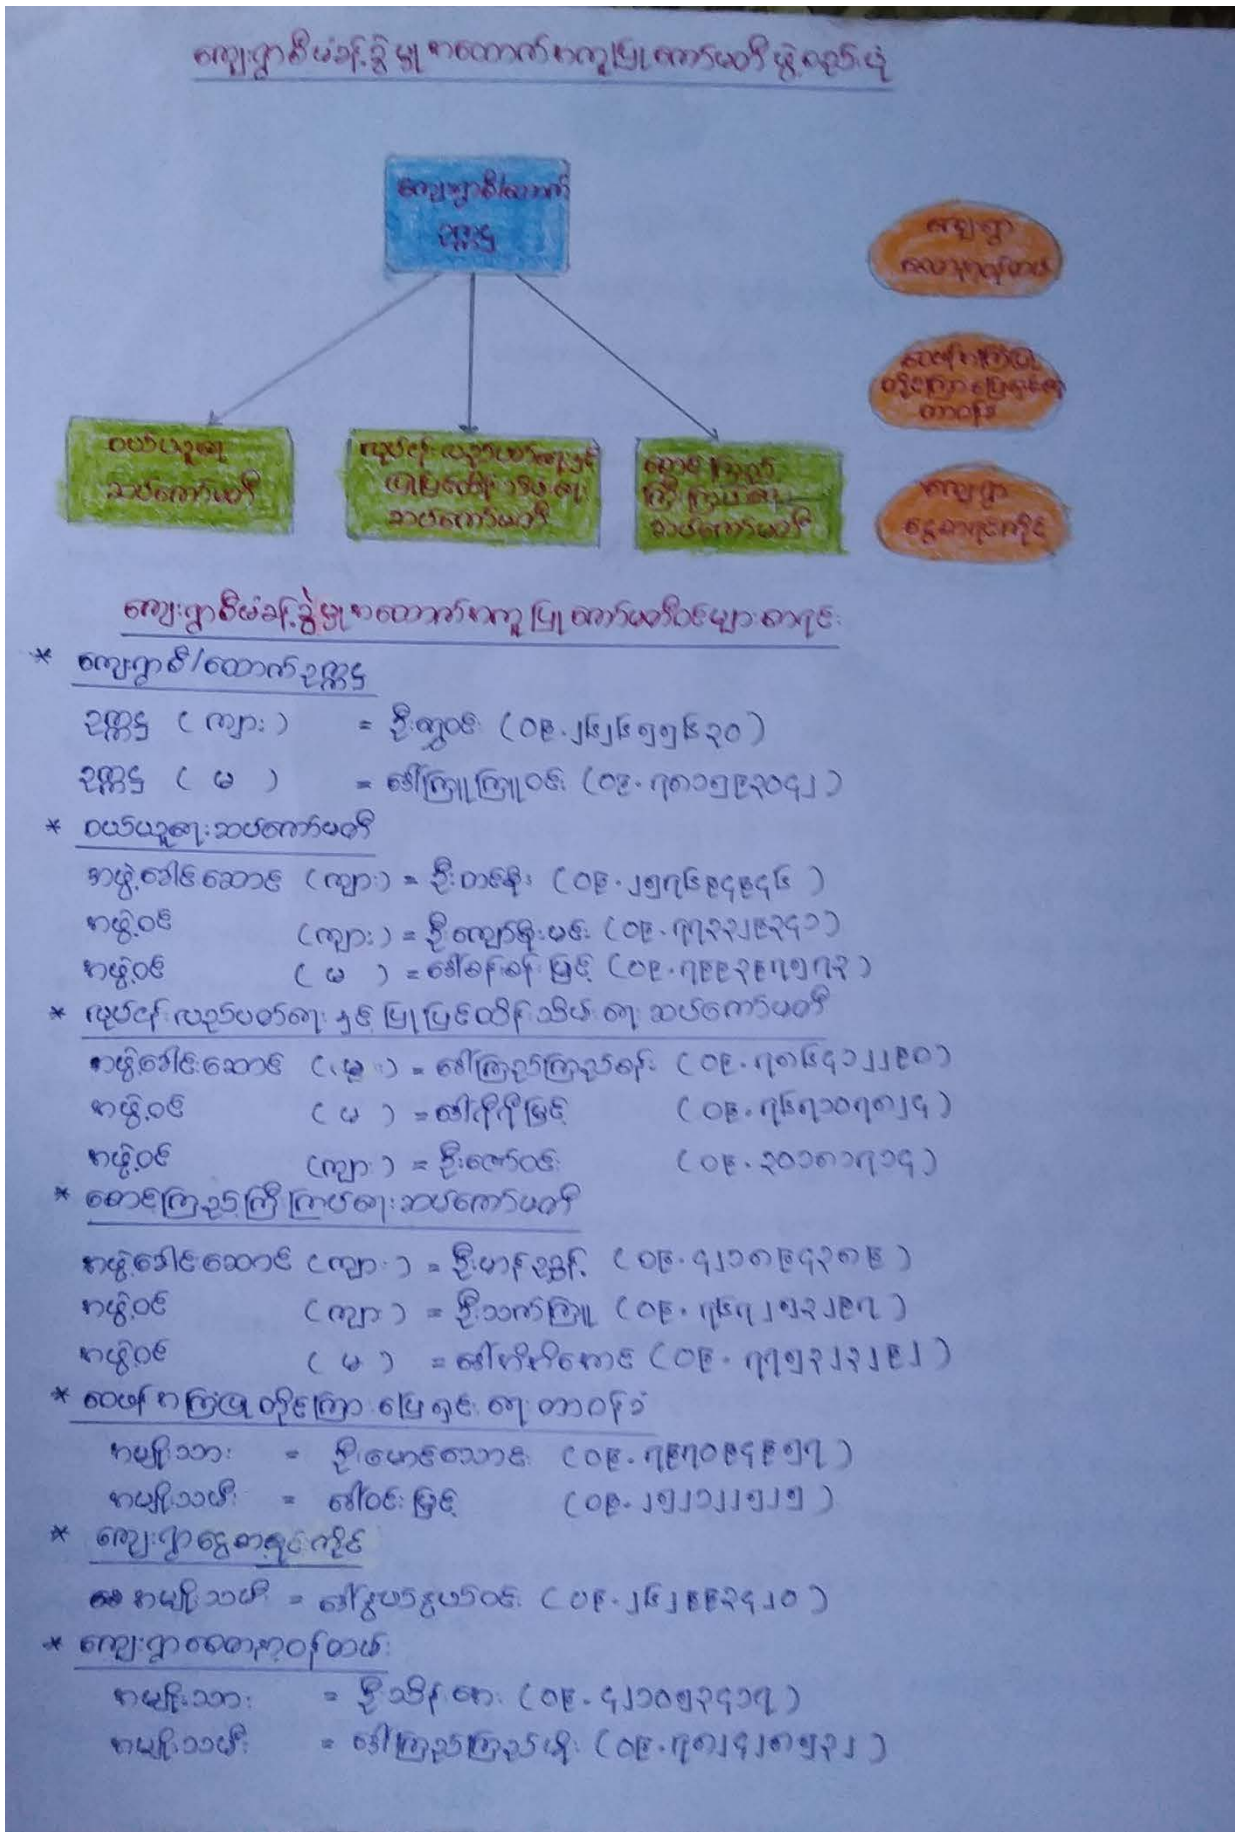 ကျေးရွာစီမံခန့်ခွဲမှုအထောက်အကူပြုကော်မတီဖွဲ့စည်းပုံ
ကျေးရွာစီ/ထောက်
ဥက္ကဋ္ဌ
ကျေးရွာ
စေတနာ့ဝန်ထမ်း
ဝေဖန်အကြံပြု
တိုင်ကြားဖြေရှင်းရေး
တာဝန်ခံ
ကျေးရွာ
ငွေစာရင်းကိုင်
ဝယ်ယူရေး
ဆပ်ကော်မတီ
လုပ်ငန်းလည်ပတ်ရေးနှင့်
ပြုပြင်ထိန်းသိမ်းရေး
ဆပ်ကော်မတီ
စောင့်ကြည့်
ကြီးကြပ်ရေး
ဆပ်ကော်မတီ
ကျေးရွာစီမံခန့်ခွဲမှုအထောက်အကူပြုကော်မတီဝင်များစာရင်း
* ကျေးရွာစီ/ထောက်ဥက္ကဋ္ဌ
ဥက္ကဋ္ဌ (ကျား) = ဦးထွဝင်း (၀၉.၂၆၂၆၅၅၆၃၀)
ဥက္ကဋ္ဌ (မ) = ဒေါ်ကြူကြူဝင်း (၀၉.၇၈၁၅၉၃၀၄၂)
* ဝယ်ယူရေးဆပ်ကော်မတီ
အဖွဲ့ခေါင်းဆောင် (ကျား) = ဦးတင်စိုး (၀၉.၂၅၇၆၉၄၉၄၆)
အဖွဲ့ဝင် (ကျား) = ဦးကျော်စိုးမင်း (၀၉.၇၇၃၃၂၉၃၄၁)
အဖွဲ့ဝင် (မ) = ဒေါ်စန်းစန်းမြင့် (၀၉.၇၉၉၃၉၇၅၇၃)
* လုပ်ငန်းလည်ပတ်ရေးနှင့်ပြုပြင်ထိန်းသိမ်းရေးဆပ်ကော်မတီ
အဖွဲ့ခေါင်းဆောင် (မ) = ဒေါ်ကြည်ကြည်စန်း (၀၉.၇၈၆၄၁၂၂၉၀)
အဖွဲ့ဝင် (မ) = ဒေါ်ကိုကိုမြင့် (၀၉.၇၆၇၁၀၇၈၂၄)
အဖွဲ့ဝင် (ကျား) = ဦးဇော်ဝင်း (၀၉.၃၀၁၈၁၇၁၄)
* စောင့်ကြည့်ကြီးကြပ်ရေးဆပ်ကော်မတီ
အဖွဲ့ခေါင်းဆောင် (ကျား) = ဦးဟန်ညွန့် (၀၉.၄၂၁၈၉၄၃၈၉)
အဖွဲ့ဝင် (ကျား) = ဦးသက်ကြူ (၀၉.၇၆၇၂၅၃၂၉၇)
အဖွဲ့ဝင် (မ) = ဒေါ်ကိုကိုအောင် (၀၉.၇၇၅၃၂၃၂၉၂)
* ဝေဖန်အကြံပြုတိုင်ကြားဖြေရှင်းရေးတာဝန်ခံ
အမျိုးသား = ဦးမောင်သောင်း (၀၉.၇၉၇၀၉၄၉၅၇)
အမျိုးသမီး = ဒေါ်ဝင်းမြင့် (၀၉.၂၅၂၁၂၂၅၂၅)
* ကျေးရွာငွေစာရင်းကိုင်
အမျိုးသမီး = ဒေါ်နွယ်နွယ်ဝင်း (၀၉.၂၆၂၉၉၃၄၂၀)
* ကျေးရွာစေတနာ့ဝန်ထမ်း
အမျိုးသား = ဦးသိန်းဇော် (၀၉.၄၂၁၀၅၃၄၁၇)
အမျိုးသမီး = ဒေါ်ကြည်ကြည်မိုး (၀၉.၇၈၂၄၂၈၅၃၂)